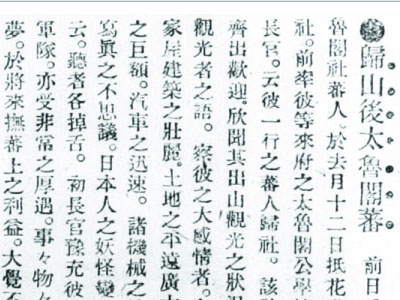 歸山後太魯閣蕃 前日
魯閣社蕃人。於去月十二日抵花
社。前率彼等來府之太魯閣公學
長官。云彼一行之蕃人歸社。該
齊出歡迎。欣聞其出山觀光之狀況
觀光者之語。察彼之大感情者。
家屋建築之壯麗。土地之平遠廣大
之巨額。汽車之迅速。諸機械之
寫眞之不思議。日本人之妖怪變
云。聽者各掉舌。初長官豫充彼
軍隊。亦受非常之厚遇。事々物々
夢。於將來撫蕃上之利益。大覺不